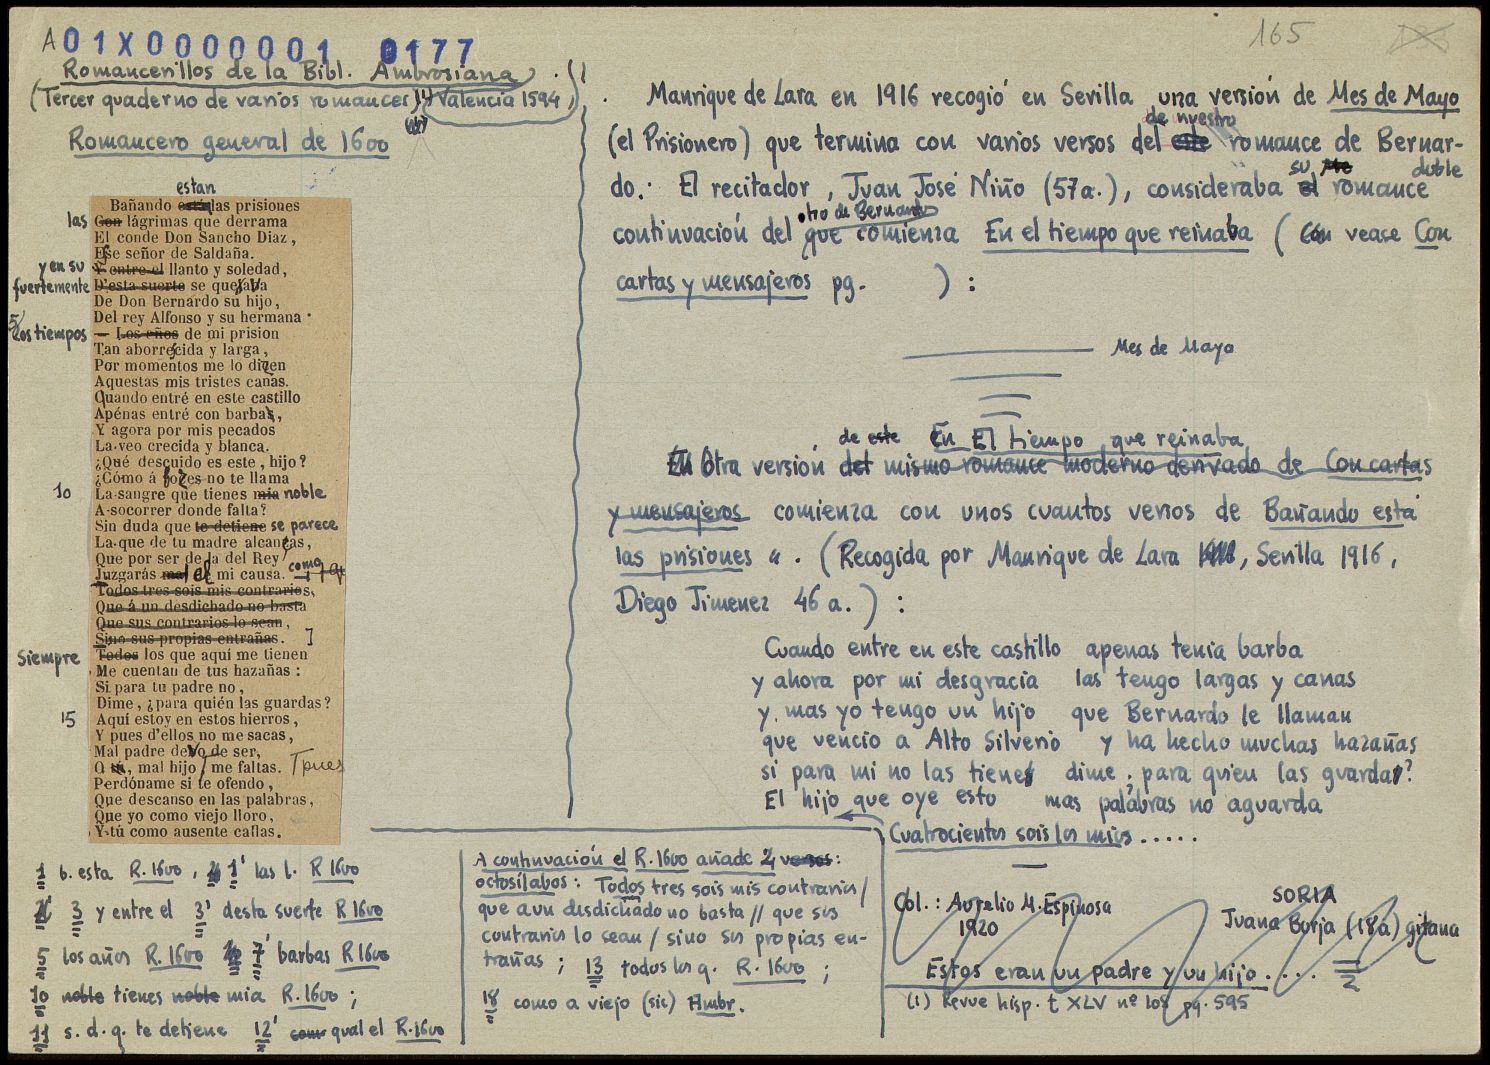 A01X0000001 0177
165
Romancerillos de la Bibl. Ambrosiana
(Tercer quaderno de varios romances (1) Valencia 1594)
Romancero general de 1600
estan
Bañando está las prisiones
las Con lágrimas que derrama
El conde Don Sancho Diaz,
Ese señor de Saldaña.
y en su Y entre el llanto y soledad,
fuertemente D'esta suerte se quejaba
De Don Bernardo su hijo,
Del rey Alfonso y su hermana.
5 Los tiempos — Los años de mi prision
Tan aborrecida y larga,
Por momentos me lo dicen
Aquestas mis tristes canas.
Quando entré en este castillo
Apénas entré con barbas,
Y agora por mis pecados
La veo crecida y blanca.
¿Qué descuido es este, hijo?
¿Cómo á voces no te llama
10 La sangre que tienes mia noble
A socorrer donde falta?
Sin duda que te detiene se parece
La que de tu madre alcanças,
Que por ser de la del Rey
Juzgarás mal el mi causa. como
Todos tres sois mis contrarios,
Que á un desdichado no basta
Que sus contrarios lo sean,
Sino sus propias entrañas. ]
Siempre Todos los que aquí me tienen
Me cuentan de tus hazañas:
Si para tu padre no,
Dime, ¿para quién las guardas?
15 Aquí estoy en estos hierros,
Y pues d'ellos no me sacas,
Mal padre devo de ser,
O tú, mal hijo, me faltas. pues
Perdóname si te ofendo,
Que descanso en las palabras,
Que yo como viejo lloro,
Y tú como ausente callas.
1 b. esta R. 1600, 1' las l. R 1600
3 y entre el 3' desta suerte R 1600
5 los años R. 1600 7' barbas R 1600
10 noble tienes noble mia R. 1600;
11 s. d. q. te detiene 12' como qual el R. 1600
A continuación el R. 1600 añade 4 versos:
octosílabos: Todos tres sois mis contrarios/
que a un desdichado no basta // que sus
contrarios lo sean / sino sus propias en-
trañas; 13 todos los q. R. 1600;
18 como a viejo (sic) Ambr.
Manrique de Lara en 1916 recogió en Sevilla una versión de Mes de Mayo
de nuestro
(el Prisionero) que termina con varios versos del este romance de Bernar-
su doble
do. El recitador, Juan José Niño (57 a.), consideraba el romance
otro de Bernardo
continuación del que comienza En el tiempo que reinaba ( vease Con
cartas y mensajeros pg. ) :
Mes de Mayo
de este En El tiempo que reinaba
En Otra versión del mismo romance moderno derivado de Con cartas
y mensajeros comienza con unos cuantos versos de Bañando está
las prisiones ". (Recogida por Manrique de Lara, Sevilla 1916,
Diego Jimenez 46 a.) :
Cuando entre en este castillo apenas tenia barba
y ahora por mi desgracia las tengo largas y canas
y mas yo tengo un hijo que Bernardo le llaman
que vencio a Alto Silverio y ha hecho muchas hazañas
si para mi no las tienes dime ¿para quien las guardas?
El hijo que oye esto mas palabras no aguarda
Cuatrocientos sois los mios.....
Col.: Aurelio M. Espinosa
1920
SORIA
Juana Borja (18 a) gitana
Estos eran un padre y un hijo....
(1) Revue hisp. t XLV nº 108 pg. 595